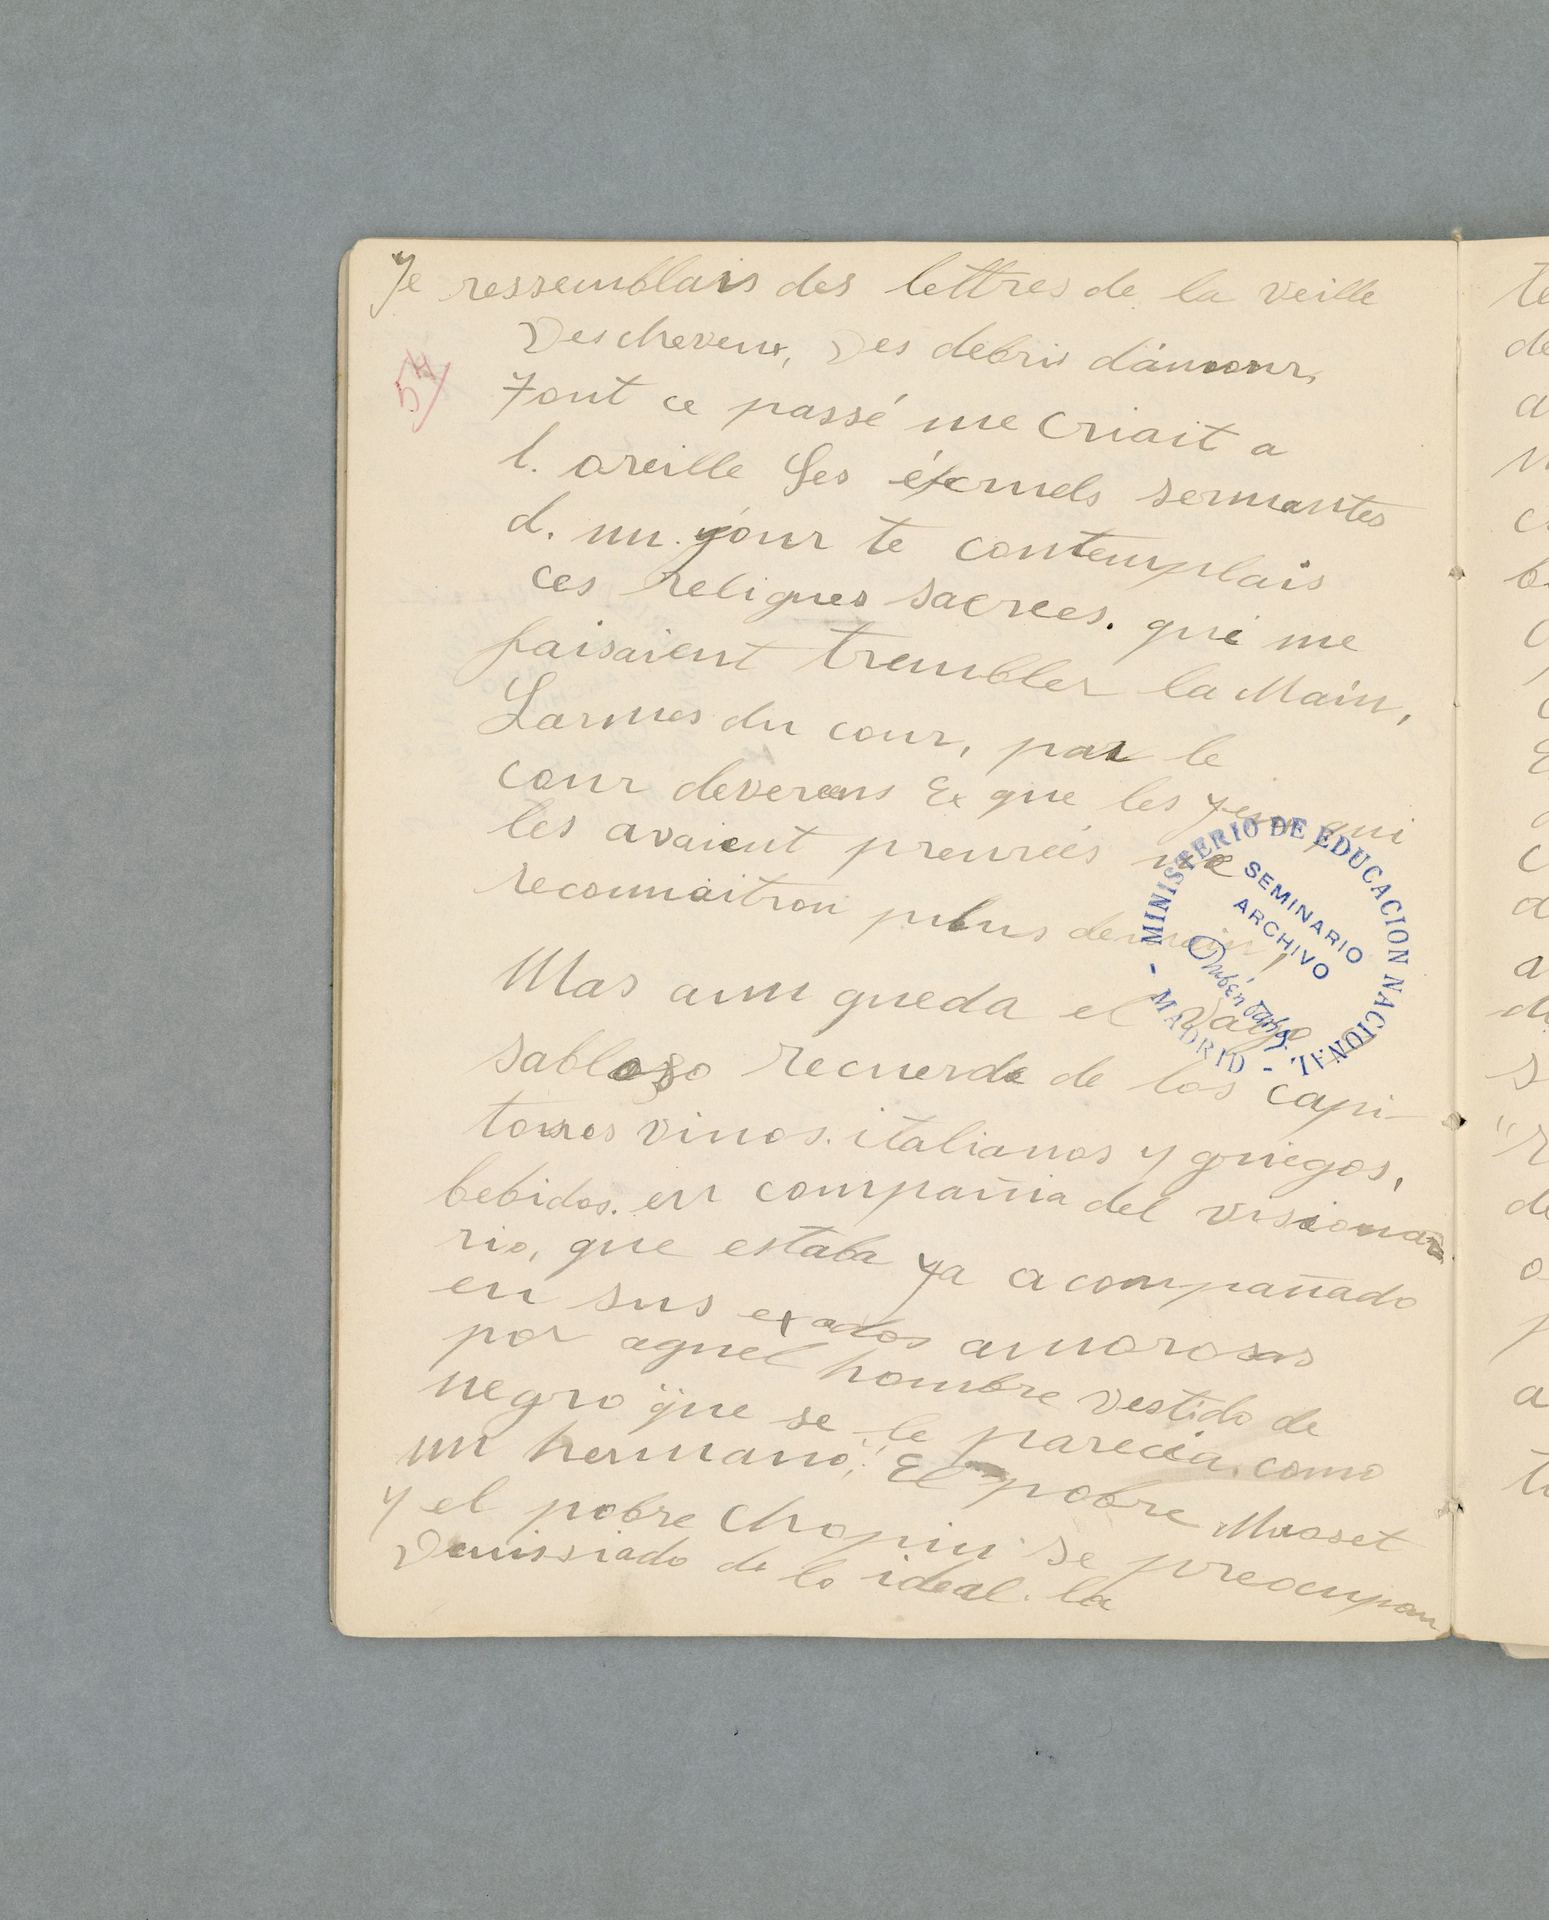 Je ressemblais des lettres de la veille
Des cheveux, Des debris d'amour,
54
Tout ce passé me criait a
l. oreille Ses éternels sermantes
d. un. jour te contemplais
ces religues sacrees. qui me
faisaient trembler la Main,
Larmes du cour, par le
cour deverens Et que les yeux qui
les avaient preurées ne
reconnaitron plus demain!
Mas aun queda el vago
sabloso recuerdo de los capi-
tosos vinos. italianos y griegos,
bebidos. en compañia del visiona
rio, que estaba ya acompañado
en sus exados amorosas
por aquel hombre vestido de
negro que se le parecia. como
un hermano! El pobre Musset
y el pobre Chopin se preocupan
Demissiado de lo ideal. la
MINISTERIO DE EDUCACION NACIONAL. - MADRID -
SEMINARIO
ARCHIVO
Rubén Darío
te
de